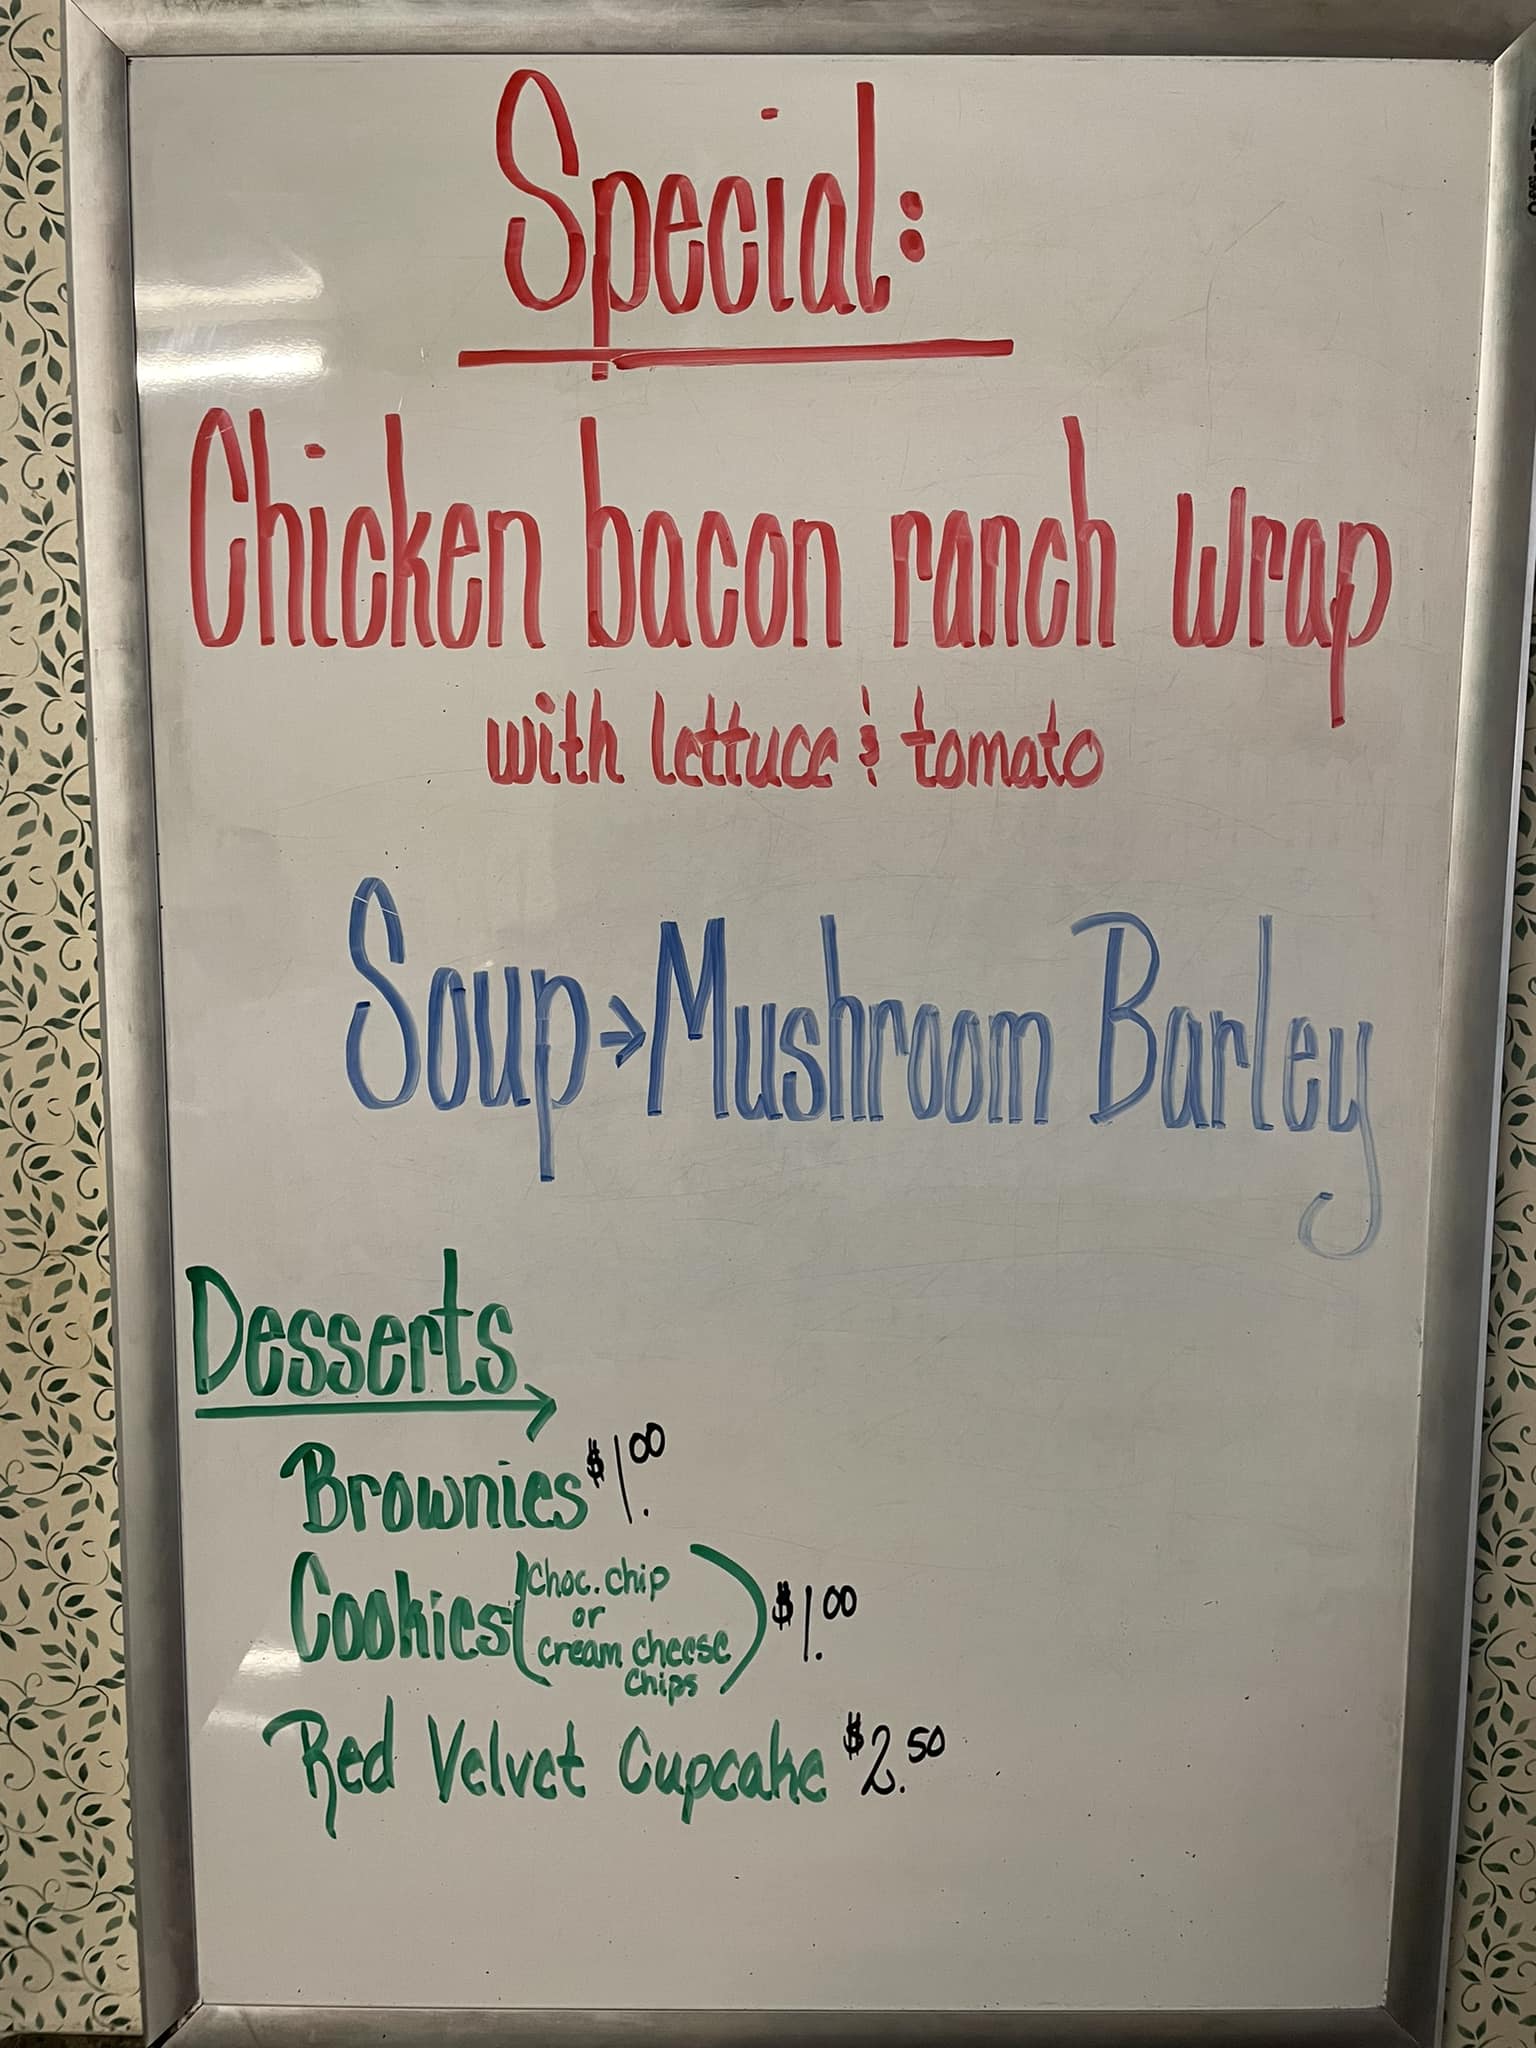 Special:
Chicken bacon ranch wrap
with lettuce & tomato
Soup → Mushroom Barley
Desserts
Brownies $1.00
Cookies (choc. chip or cream cheese chips) $1.00
Red Velvet Cupcake $2.50